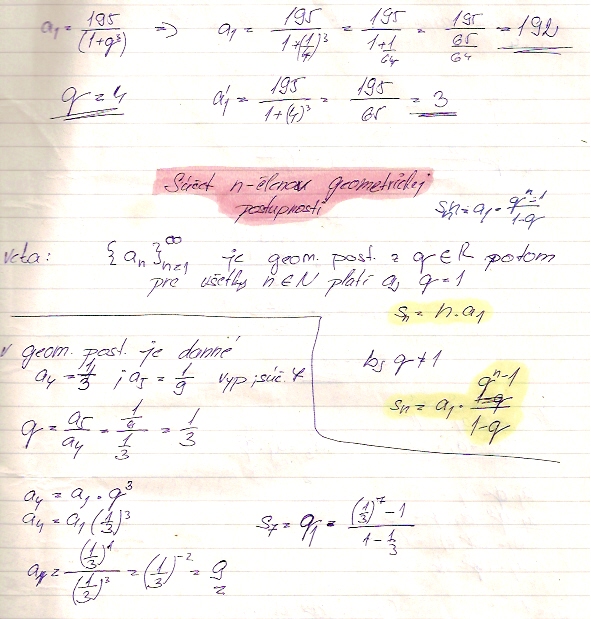 a₁ = 195/(1+q³) => a₁ = 195/(1+(1/4)³) = 195/(1+1/64) = 195/(65/64) = 192
q = 4 a₁' = 195/(1+(4)³) = 195/65 = 3
Súčet n-členov geometrickej
postupnosti
sₙ = a₁ · (qⁿ-1)/(1-q)
veta: {aₙ}∞ₙ₌₁ je geom. post. z q ∈ R potom
pre všetky n ∈ N platí a) q = 1
sₙ = n . a₁
b) q ≠ 1
sₙ = a₁ · (qⁿ-1)/(1-q)
v geom. post. je danné
a₄ = 1/3 ; a₅ = 1/9 vyp súč. 7
q = a₅/a₄ = (1/9)/(1/3) = 1/3
a₄ = a₁ · q³
a₄ = a₁ (1/3)³
a₁ = (1/3)¹/(1/3)³ = (1/3)⁻² = 9
s₇ = 9 · ((1/3)⁷ - 1)/(1 - 1/3)